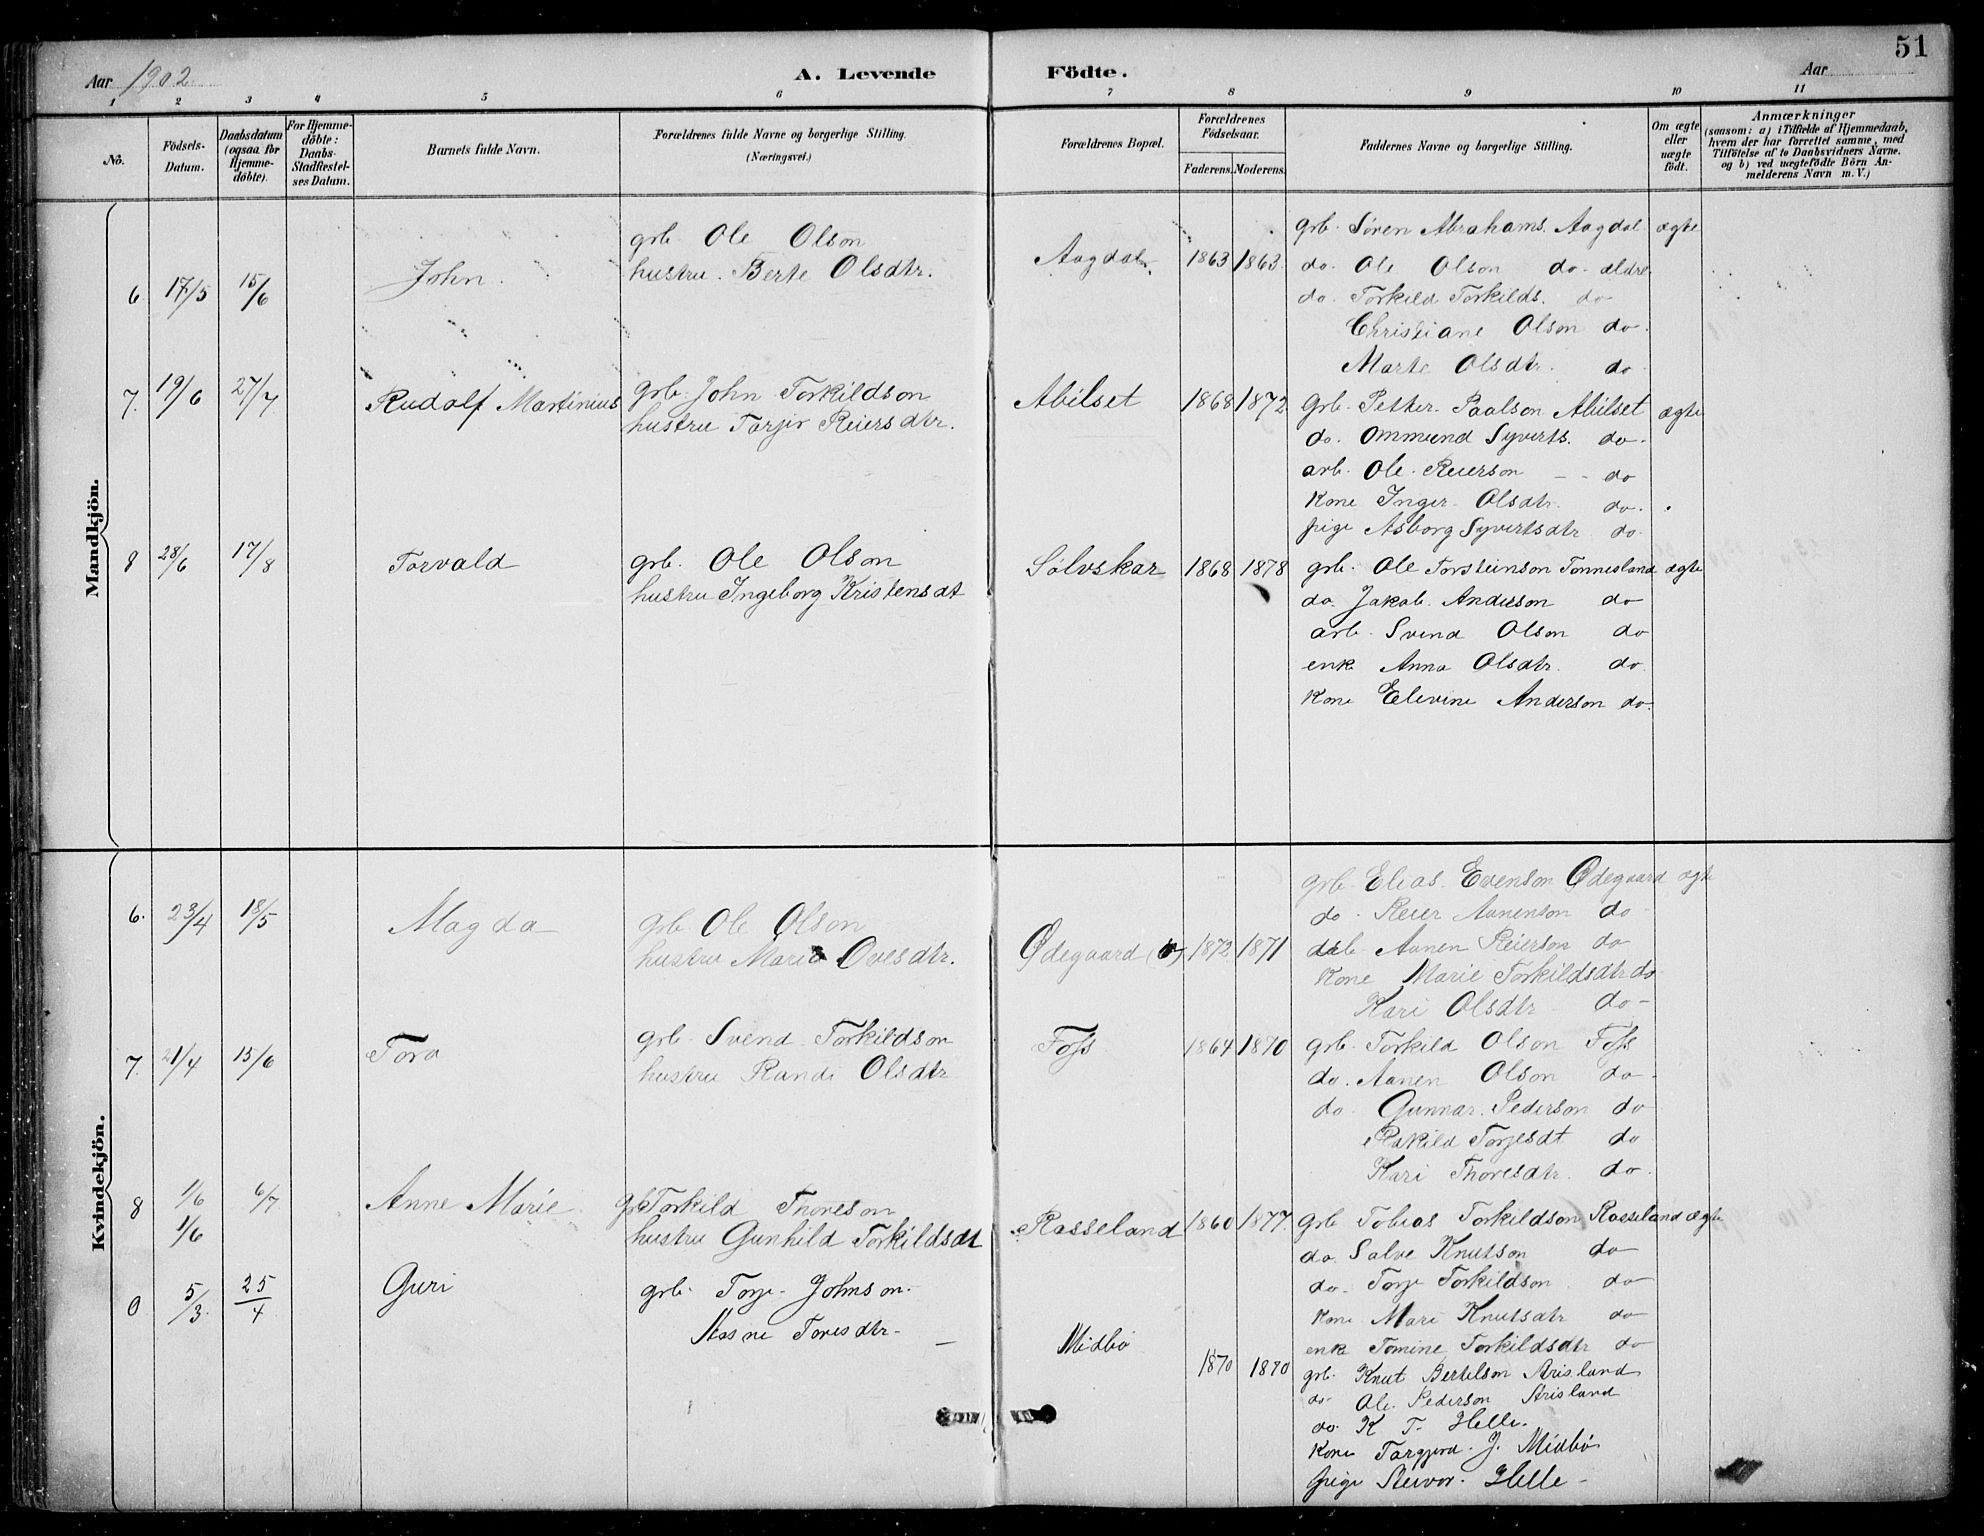 51
Aar 1902
A. Levende
Födte.
Aar
1 2 3 4 5 6 7 8 9 10 11
No.
Födsels-
Datum.
Daabsdatum
(ogsaa for
Hjemme-
döbte).
For Hjemme-
döbte:
Daabs-
Stadfæstel-
ses Datum.
Barnets fulde Navn.
Forældrenes fulde Navne og borgerlige Stilling.
(Næringsvei.)
Forældrenes Bopæl.
Forældrenes
Födselsaar.
Faderens. Moderens.
Faddernes Navne og borgerlige Stilling.
Om ægte
eller
uægte
födt.
Anmærkninger
(saasom: a) i Tilfælde af Hjemmedaab,
hvem der har forrettet samme, med
Tilföielse af to Daabsvidners Navne.
og b) ved uægtefödte Börn An-
melderens Navn m. V.)
Mandkjön.
6 17/5 15/6 John.
grb. Ole Olson
hustru. Berte Olsdtr.
Aagdal 1863 1863
grb. Sören Abrahams. Aagdal ægte
do. Ole Olson do. ældre
do. Torkild Torkilds. do
Christiane Olson do
Marte Olsdtr. do
7. 19/6 27/7 Rudolf Martinius
grb. John Torkildson
hustru Torjir Reiersdtr.
Abilset 1868 1872
Grb. Petter Paalson Abilset ægte
do. Ommund Syverts. do.
arb. Ole Reierson do
Kone Inger Olsdtr. do.
pige Asborg Syvertsdtr do
8 28/6 17/8 Torvald
grb. Ole Olson
hustru Ingeborg Kristensdt
Sölvskar 1868 1878
grb. Ole Torsteinson Tönnesland ægte
do. Jakob Anderson do
arb. Svend Olson do
enk Anna Olsdtr. do
Kone Elevine Anderson do.
Kvindekjön.
6. 23/4 18/5 Magda
grb Ole Olson
hustru Marie Ovesdtr.
Ødegaard 1872 1871
grb. Elias Evenson Ødegaard ægte
do. Reier Aanenson do
Aanen Reierson do
Kone Marie Torkildsdtr do
Kari Olsdtr do
7. 21/4 15/6 Tora
grb. Svend Torkildson
hustru Randi Olsdtr
Foss 1864 1870
grb. Torkild Olson Foss
do. Aanen Olson do
do Gunnar Pederson do
Rakild Torjesdt do
Kari Thoresdtr. do
8 1/6 6/7 Anne Marie
1/6
Grb Torkild Thoreson
hustru Gunhild Torkildsdt
Rosseland 1860 1877
grb Tobias Torkildson Rosseland ægte
do Salve Knutson do
do Torje Torkildson do
Kone Mari Knutsdtr do
enk Tomine Torkildsdtr do
0 5/3. 25/4 Guri
grb. Torje Johnson
Aasne Toresdtr
Midbö 1870 1880
grb. Knut Bertelson Arisland
do Ole Pederson Arisland
do. K T. Helle.
Kone Torgjerd J. Midbö
pige Steivor Helle